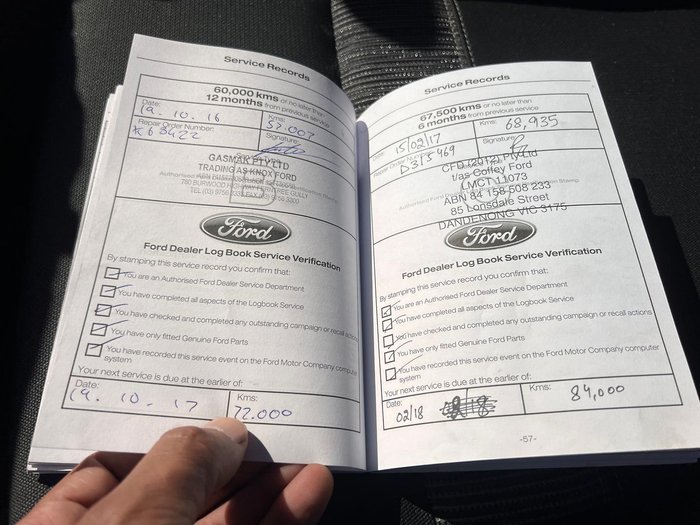 Service Records
60,000 kms or no later than
12 months from previous service
Date: Kms:
19.10.16 57.007
Repair Order Number: Signature:
GASMAK PTY LTD
TRADING AS KNOX FORD
780 BURWOOD HIGHWAY FERNTREE GULLY
Ford
Ford Dealer Log Book Service Verification
By stamping this service record you confirm that:
You are an Authorised Ford Dealer Service Department
You have completed all aspects of the Logbook Service
You have checked and completed any outstanding campaign or recall actions
You have only fitted Genuine Ford Parts
You have recorded this service event on the Ford Motor Company computer
system
Your next service is due at the earlier of:
Date: Kms:
19.10-17 72.000
Service Records
67,500 kms or no later than
6 months from previous service
Date: 15/02/17 Kms: 68,935
Repair Order Number: Signature:
D315469
CFD (2012) Pty Ltd
t/as Coffey Ford
LMCT 11073
ABN 84 158 508 233
85 Lonsdale Street
DANDENONG VIC 3175
Ford
Ford Dealer Log Book Service Verification
By stamping this service record you confirm that:
You are an Authorised Ford Dealer Service Department
You have completed all aspects of the Logbook Service
You have checked and completed any outstanding campaign or recall actions
You have only fitted Genuine Ford Parts
You have recorded this service event on the Ford Motor Company computer
system
Your next service is due at the earlier of:
Date: Kms:
02/18 84,000
-57-